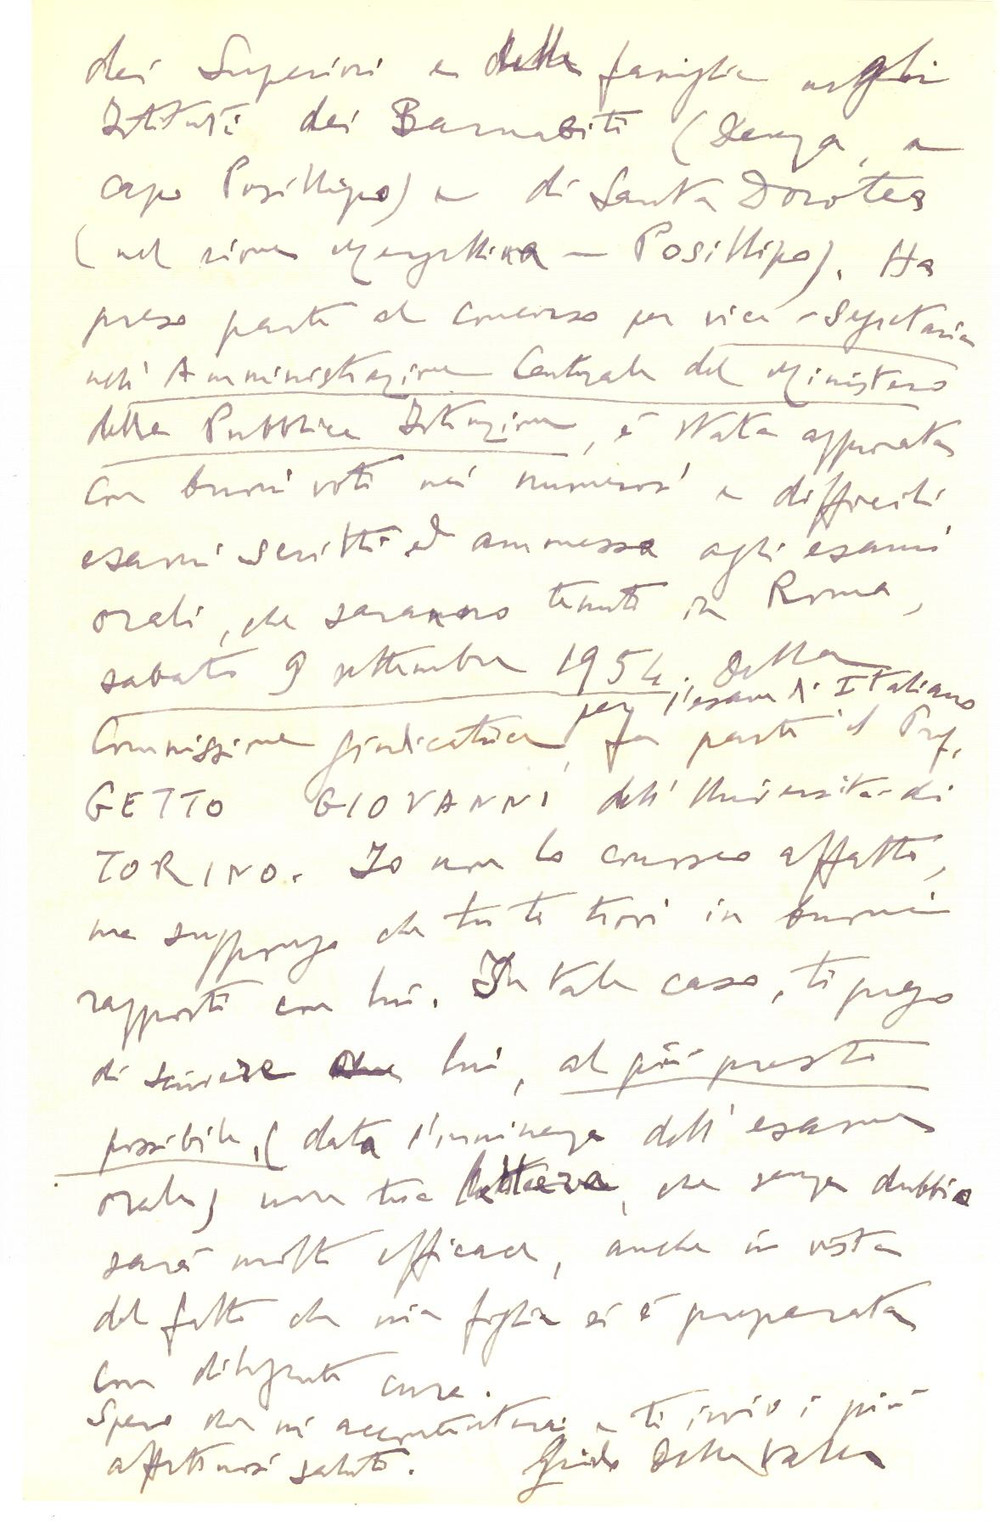 dei Superiori e delle famiglie negli
Istituti dei Barnabiti (Denza, a
capo Posillipo) e di Santa Dorotea
(nel rione Mergellina – Posillipo). Ha
preso parte al concorso per vice-segretaria
nell'Amministrazione Centrale del Ministero
della Pubblica Istruzione, è stata approvata
con buoni voti nei numerosi e difficili
esami scritti ed ammessa agli esami
orali, che saranno tenuti in Roma,
sabato 9 settembre 1954. Della
Commissione giudicatrice per l'esame di Italiano, fa parte il Prof.
GETTO GIOVANNI dell'Università di
TORINO. Io non lo conosco affatto,
ma suppongo che tu ti trovi in buoni
rapporti con lui. In tale caso, ti prego
di scrivere lui, al più presto
possibile, (data l'imminenza dell'esame
orale) una tua lettera, che senza dubbio
sarà molto efficace, anche in vista
del fatto che mia figlia si è preparata
con diligente cura.
Spero che mi accontenterai e ti invio i più
affettuosi saluti. Guido Della Valle